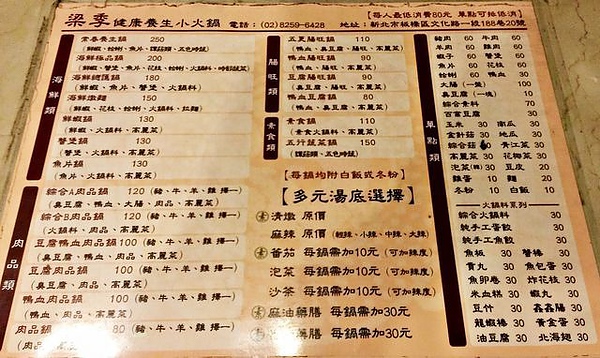 梁季健康養生小火鍋 電話：(02)8259-6428
【每人最低消費80元 單點可抵低消】
地址：新北市板橋區文化路一段188巷20號
海鮮類
常春養生鍋 250
海鮮極品鍋 200
海鮮總匯鍋 180
(鮮蝦、魚片、蟹堡、火鍋料)
海鮮燉麵 150
(鮮蝦、花枝、蛤蜊、火鍋料、拉麵)
鮮蝦鍋 130
(鮮蝦、火鍋料、高麗菜)
蟹堡鍋 130
(蟹堡、火鍋料、高麗菜)
魚片鍋 130
(魚片、火鍋料、高麗菜)
肉品類
綜合A肉品鍋 120 (豬、牛、羊、雞 擇一)
(臭豆腐、鴨血、大腸、肉品、高麗菜)
綜合B肉品鍋 120 (豬、牛、羊、雞 擇一)
(火鍋料、肉品、高麗菜)
豆腐鴨血肉品鍋 110 (豬、牛、羊、雞 擇一)
(臭豆腐、鴨血、肉品、高麗菜)
豆腐肉品鍋 100 (豬、牛、羊、雞 擇一)
(臭豆腐、肉品、高麗菜)
鴨血肉品鍋 100 (豬、牛、羊、雞 擇一)
(鴨血、肉品、高麗菜)
肉片鍋 80 (豬、牛、羊、雞 擇一)
腸旺類
五更腸旺鍋 110
(鴨血、臭豆腐、大腸、高麗菜)
鴨血腸旺鍋 90
(鴨血、大腸、高麗菜)
豆腐腸旺鍋 90
(臭豆腐、大腸、高麗菜)
鴨血豆腐鍋 80
(鴨血、臭豆腐、高麗菜)
素食類
素食鍋 110
(素食火鍋料、高麗菜)
五行蔬菜鍋 150
【每鍋均附白飯或冬粉】
【多元湯底選擇】
素 清燉 原價
麻辣 原價 (輕辣、小辣、中辣、大辣)
素 番茄 每鍋需加10元 (可加辣度)
泡菜 每鍋需加10元 (可加辣度)
沙茶 每鍋需加10元 (可加辣度)
素 麻油藥膳 每鍋需加30元
藥膳 每鍋需加30元 (可加辣度)
單點類
豬肉 60 牛肉 60
羊肉 60 雞肉 60
鮮蝦 60 蟹堡 60
魚片 60 花枝 60
蛤蜊 60 鴨血 30
大腸(一盤) 100
臭豆腐(一塊) 10
綜合素料 70
百富豆腐 30
玉米 30 南瓜 30
金針菇 30 地瓜 30
綜合菇 30 青江菜 30
高麗菜 30 花椰菜 30
泡菜 30 豆皮 30
雞蛋 10 蛋餃 30
冬粉 10 白飯 10
火鍋料系列
綜合火鍋料 30
純手工蛋餃 30
純手工魚餃 30
魚板 30 蟹棒 30
貢丸 30 魚包蛋 30
魚卵卷 30 炸花枝 30
米血糕 30 蝦丸 30
豆竹 30 鑫鑫腸 30
龍蝦棒 30 黃金蛋 30
油豆腐 30 北海翅 30